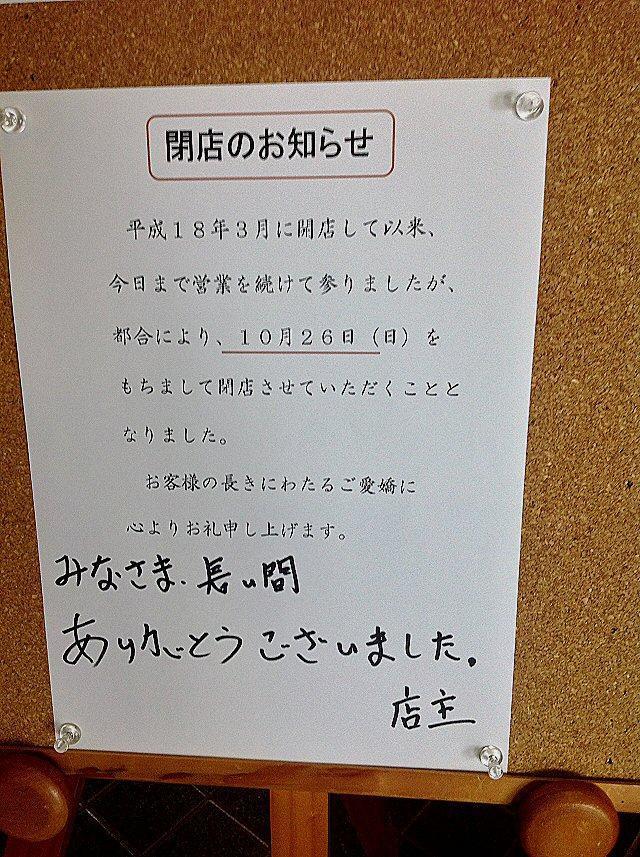 閉店のお知らせ
平成１８年３月に開店して以来、
今日まで営業を続けて参りましたが、
都合により、１０月２６日（日）を
もちまして閉店させていただくことと
なりました。
お客様の長きにわたるご愛嬌に
心よりお礼申し上げます。
みなさま、長い間
ありがとうございました。
店主